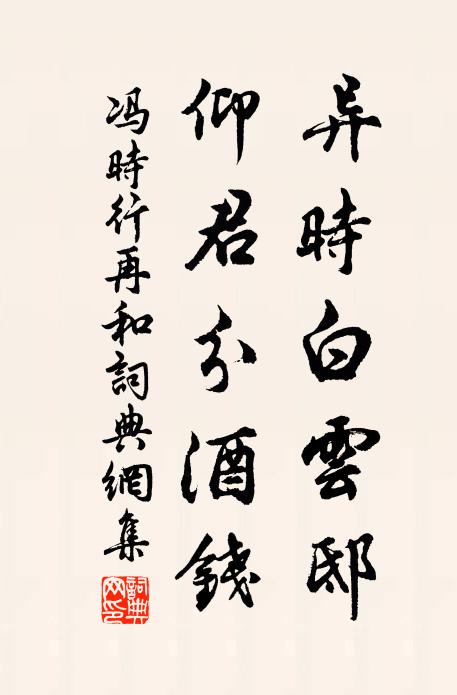 异時白雲邸
仰君分酒錢
冯時行再和詞典網集
詞典网印